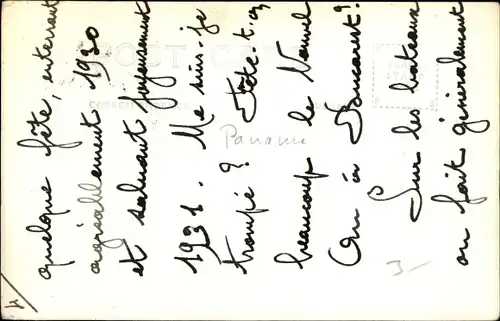 quelque fête, enterrant
agréablement 1930
et saluant joyeusement
1931. Me suis-je
trompé ? Fête-t-on
beaucoup le Nouvel
An à Bucarest ?
Sur les bateaux
on fait généralement
Panama
3-
POST CARD